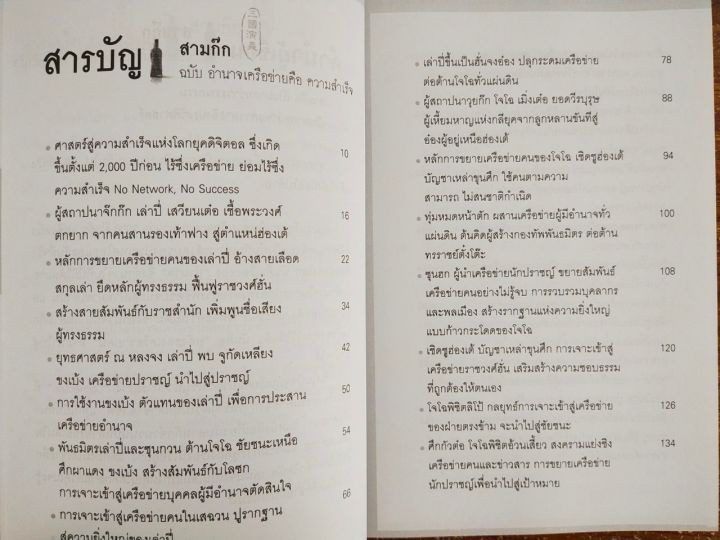 สารบัญ
三國演義
สามก๊ก
ฉบับ อำนาจเครือข่ายคือ ความสำเร็จ
ศาสตร์สู่ความสำเร็จแห่งโลกยุคดิจิตอล ซึ่งเกิด 10
ขึ้นตั้งแต่ 2,000 ปีก่อน ไร้ซึ่งเครือข่าย ย่อมไร้ซึ่ง
ความสำเร็จ No Network, No Success
ผู้สถาปนาจ๊กก๊ก เล่าปี่ เสวียนเต๋อ เชื้อพระวงศ์ 16
ตกยาก จากคนสานรองเท้าฟาง สู่ตำแหน่งฮ่องเต้
หลักการขยายเครือข่ายคนของเล่าปี่ อ้างสายเลือด 22
สกุลเล่า ยึดหลักผู้ทรงธรรม ฟื้นฟูราชวงศ์ฮั่น
สร้างสายสัมพันธ์กับราชสำนัก เพิ่มพูนชื่อเสียง 34
ผู้ทรงธรรม
ยุทธศาสตร์ ณ หลงจง เล่าปี่ พบ จูกัดเหลียง 42
ขงเบ้ง เครือข่ายปราชญ์ นำไปสู่ปราชญ์
การใช้งานขงเบ้ง ตัวแทนของเล่าปี่ เพื่อการประสาน 50
เครือข่ายอำนาจ
พันธมิตรเล่าปี่และซุนกวน ต้านโจโฉ ชัยชนะเหนือ 54
ศึกผาแดง ขงเบ้ง สร้างสัมพันธ์กับโลซก
การเจาะเข้าสู่เครือข่ายบุคคลผู้มีอำนาจตัดสินใจ
การเจาะเข้าสู่เครือข่ายคนในเสฉวน ปูรากฐาน 66
สู่ความยิ่งใหญ่ของเล่าปี่
เล่าปี่ขึ้นเป็นฮั่นจงอ๋อง ปลุกระดมเครือข่าย 78
ต่อต้านโจโฉทั่วแผ่นดิน
ผู้สถาปนาวุยก๊ก โจโฉ เมิ่งเต๋อ ยอดวีรบุรุษ 88
ผู้เหี้ยมหาญแห่งกลียุคจากลูกหลานขันทีสู่
อ๋องผู้อยู่เหนือฮ่องเต้
หลักการขยายเครือข่ายคนของโจโฉ เชิดชูฮ่องเต้ 94
บัญชาเหล่าขุนศึก ใช้คนตามความ
สามารถ ไม่สนชาติกำเนิด
ทุ่มหมดหน้าตัก ผสานเครือข่ายผู้มีอำนาจทั่ว 100
แผ่นดิน ต้นคิดผู้สร้างกองทัพพันธมิตร ต่อต้าน
ทรราชย์ตั๋งโต๊ะ
ซุนฮก ผู้นำเครือข่ายนักปราชญ์ ขยายสัมพันธ์ 108
เครือข่ายคนอย่างไม่รู้จบ การรวบรวมบุคลากร
และพลเมือง สร้างรากฐานแห่งความยิ่งใหญ่
แบบก้าวกระโดดของโจโฉ
เชิดชูฮ่องเต้ บัญชาเหล่าขุนศึก การเจาะเข้าสู่ 120
เครือข่ายราชวงศ์ฮั่น เสริมสร้างความชอบธรรม
ที่ถูกต้องให้ตนเอง
โจโฉพิชิตลิโป้ กลยุทธ์การเจาะเข้าสู่เครือข่าย 126
ของฝ่ายตรงข้าม จะนำไปสู่ชัยชนะ
ศึกกัวต๋อ โจโฉพิชิตอ้วนเสี้ยว สงครามแย่งชิง 134
เครือข่ายคนและข่าวสาร การขยายเครือข่าย
นักปราชญ์เพื่อนำไปสู่เป้าหมาย